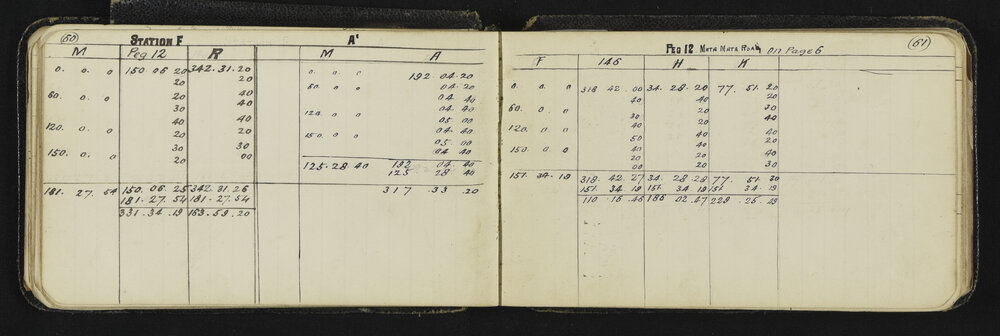 60 STATION F A'
M Peg 12 R M A
0. 0. 0 150 06 20 342. 31. 20 0 0 0 192 04. 20
20 20 60. 0 0 04. 20
60. 0. 0 20 40 04 40
30 40 120. 0 0 04. 40
120. 0. 0 40 40 05 00
20 20 150. 0 0 04. 40
30 30 05. 00
150. 0. 0 20 00 04 40
125. 28 40 192 04. 40
125 28 40
181. 27. 54 150. 06. 25 342. 31. 26 317. 33. 20
181. 27. 54 181. 27. 54
331. 34. 19 163. 59. 20
PEG 12 MATA MATA ROAD on Page 6 61
F 146 H K
0. 0. 0 318 42. 00 34. 28. 20 77. 51. 20
40 40 20
60. 0. 0 20 30
120. 0. 0 40 20 40
50 40 20
150. 0. 0 40 20 40
20 20 20
00 20 30
151. 34. 19 318. 42. 27 34. 28. 28 77. 51. 30
151. 34. 19 151. 34. 19 151. 34. 19
110. 16. 46 186 02. 47 229. 25. 49